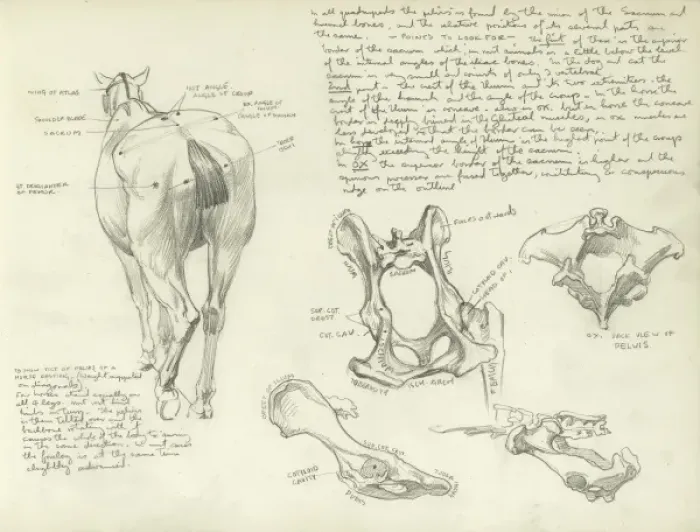 In all quadrupeds the pelvis is found by the union of the Sacrum and
bones, and the relative positions of its several parts are
the same. — POINTS TO LOOK FOR — The first of these is the superior
border of the sacrum which, in most animals is a little below the level
of the internal angles of the iliac bones. In the dog and cat the
sacrum is very small and consists of only 3 vertebrae
2nd point – the crest of the Ilium and its two extremities - the
angle of the haunch and the angle of the croup – In the horse the
crest of the Ilium is concave – also in ox. but in horse the concave
border is deeply buried in the Gluteal muscles, in ox muscles are
less developed so that the border can be seen.
In horse the internal angle of Ilium is the highest point of the croup
slightly exceeding the height of the sacrum.
In OX the superior border of the sacrum is higher and the
spinous processes are fused together, constituting a conspicuous
ridge on the outline
WING OF ATLAS
SHOULDER BLADE
SACRUM
INT ANGLE
ANGLE OF CROUP
EX. ANGLE OF
(ANGLE OF HAUNCH
GT TROCHANTER
OF FEMUR
CREST OF ILIUM
ILIUM
SACRUM
ILIUM
SUP. COT.
CREST
COT. CAV.
COTYLOID CAV.
HEAD OF
FEMUR
TUBEROSITY
ISCH.
OX. BACK VIEW OF
PELVIS
CREST OF ILIUM
COTYLOID
CAVITY
PUBIS
HORSE RESTING. (Weight supported
on diagonals)
Few horses stand equally on
all 4 legs but rest hind
limbs in turn. The pelvis
is then tilted over and the
backbone rotating with it
causes the whole of the body to
in the same direction.
the is at the same time
slightly